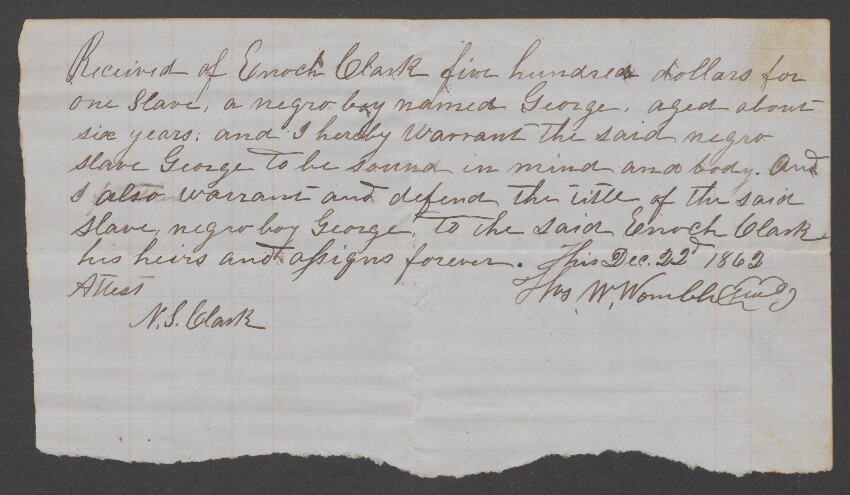 Received of Enoch Clark five hundred dollars for
one Slave, a negro boy named George, aged about
six years; and I hereby Warrant the said negro
slave George to be sound in mind and body. And
I also warrant and defend the title of the said
slave, negro boy George, to the said Enoch Clark
his heirs and assigns forever. This Dec. 22d 1862
Attest Thos W. Womble (Seal)
N. S. Clark